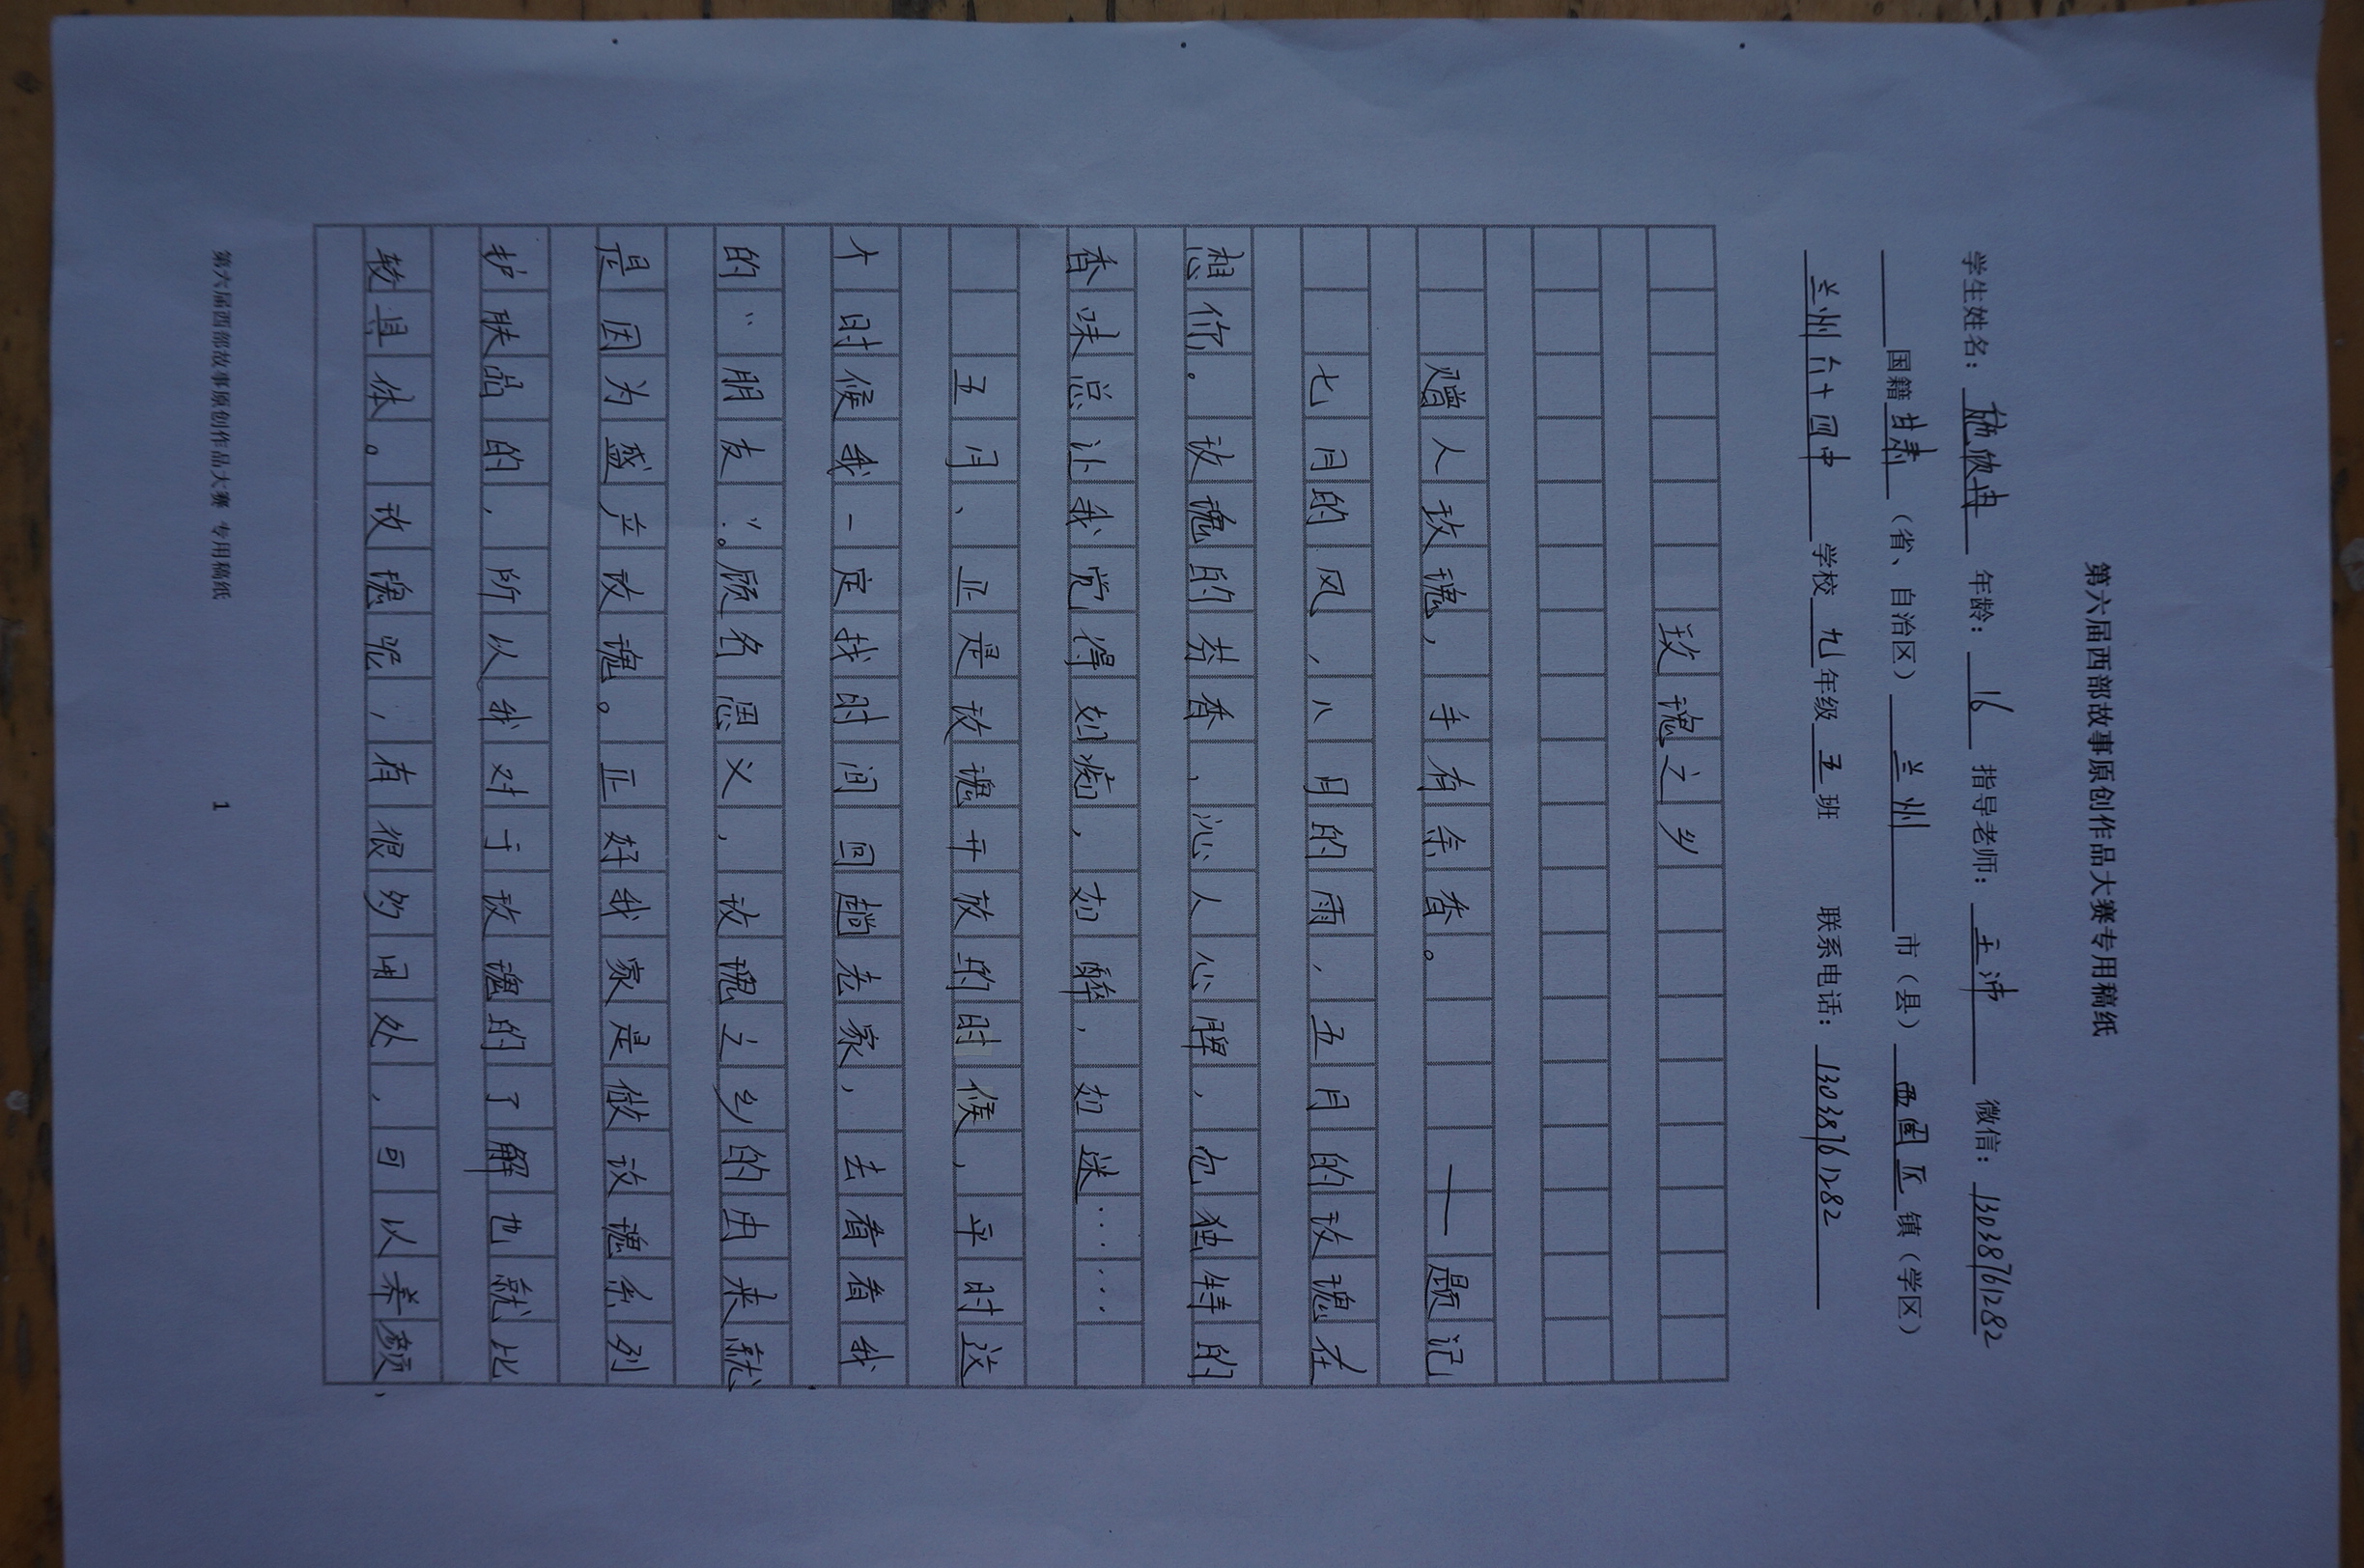 第六届西部故事原创作品大赛专用稿纸
学生姓名： 欣冉 年龄：16 指导老师：王沛 微信：13038761282
国籍 甘肃（省、自治区） 兰州 市（县） 西固区 镇（学区）
兰州六十四中 学校 九 年级 五 班 联系电话：13038761282
玫瑰之乡
赠人玫瑰，手有余香。 ——题记
七月的风，八月的雨，五月的玫瑰在
想你。玫瑰的芬香、沁人心脾，它独特的
香味总让我觉得如痴，如醉，如迷……
五月、正是玫瑰开放的时候，平时这
个时候我一定找时间回趟老家，去看看我
的“朋友”。顾名思义，玫瑰之乡的由来就
是因为盛产玫瑰。正好我家是做玫瑰系列
护肤品的，所以我对于玫瑰的了解也就比
较具体。玫瑰呢，有很多用处，可以养颜、
第六届西部故事原创作品大赛 专用稿纸 1